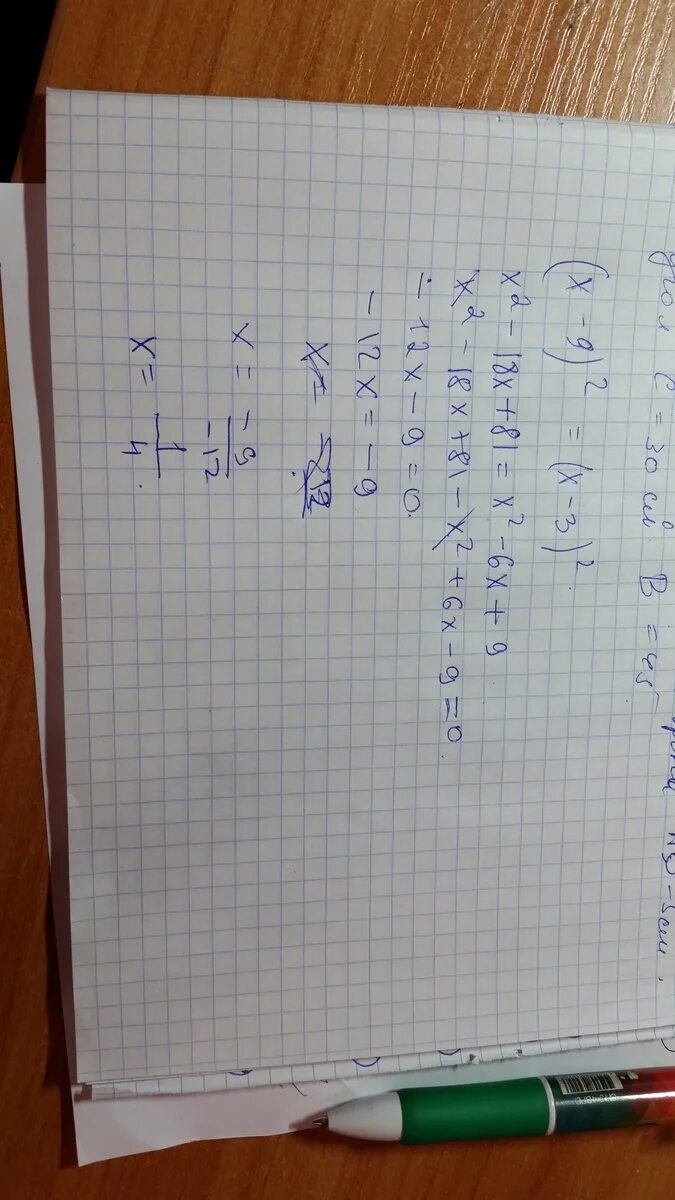 угол C = 30 см. B = 45
(x - 9)² = (x - 3)².
x² - 18x + 81 = x² - 6x + 9
x² - 18x + 81 - x² + 6x - 9 = 0
- 12x - 9 = 0.
- 12x = - 9
x =
x = -9/-12
x = 1/4.